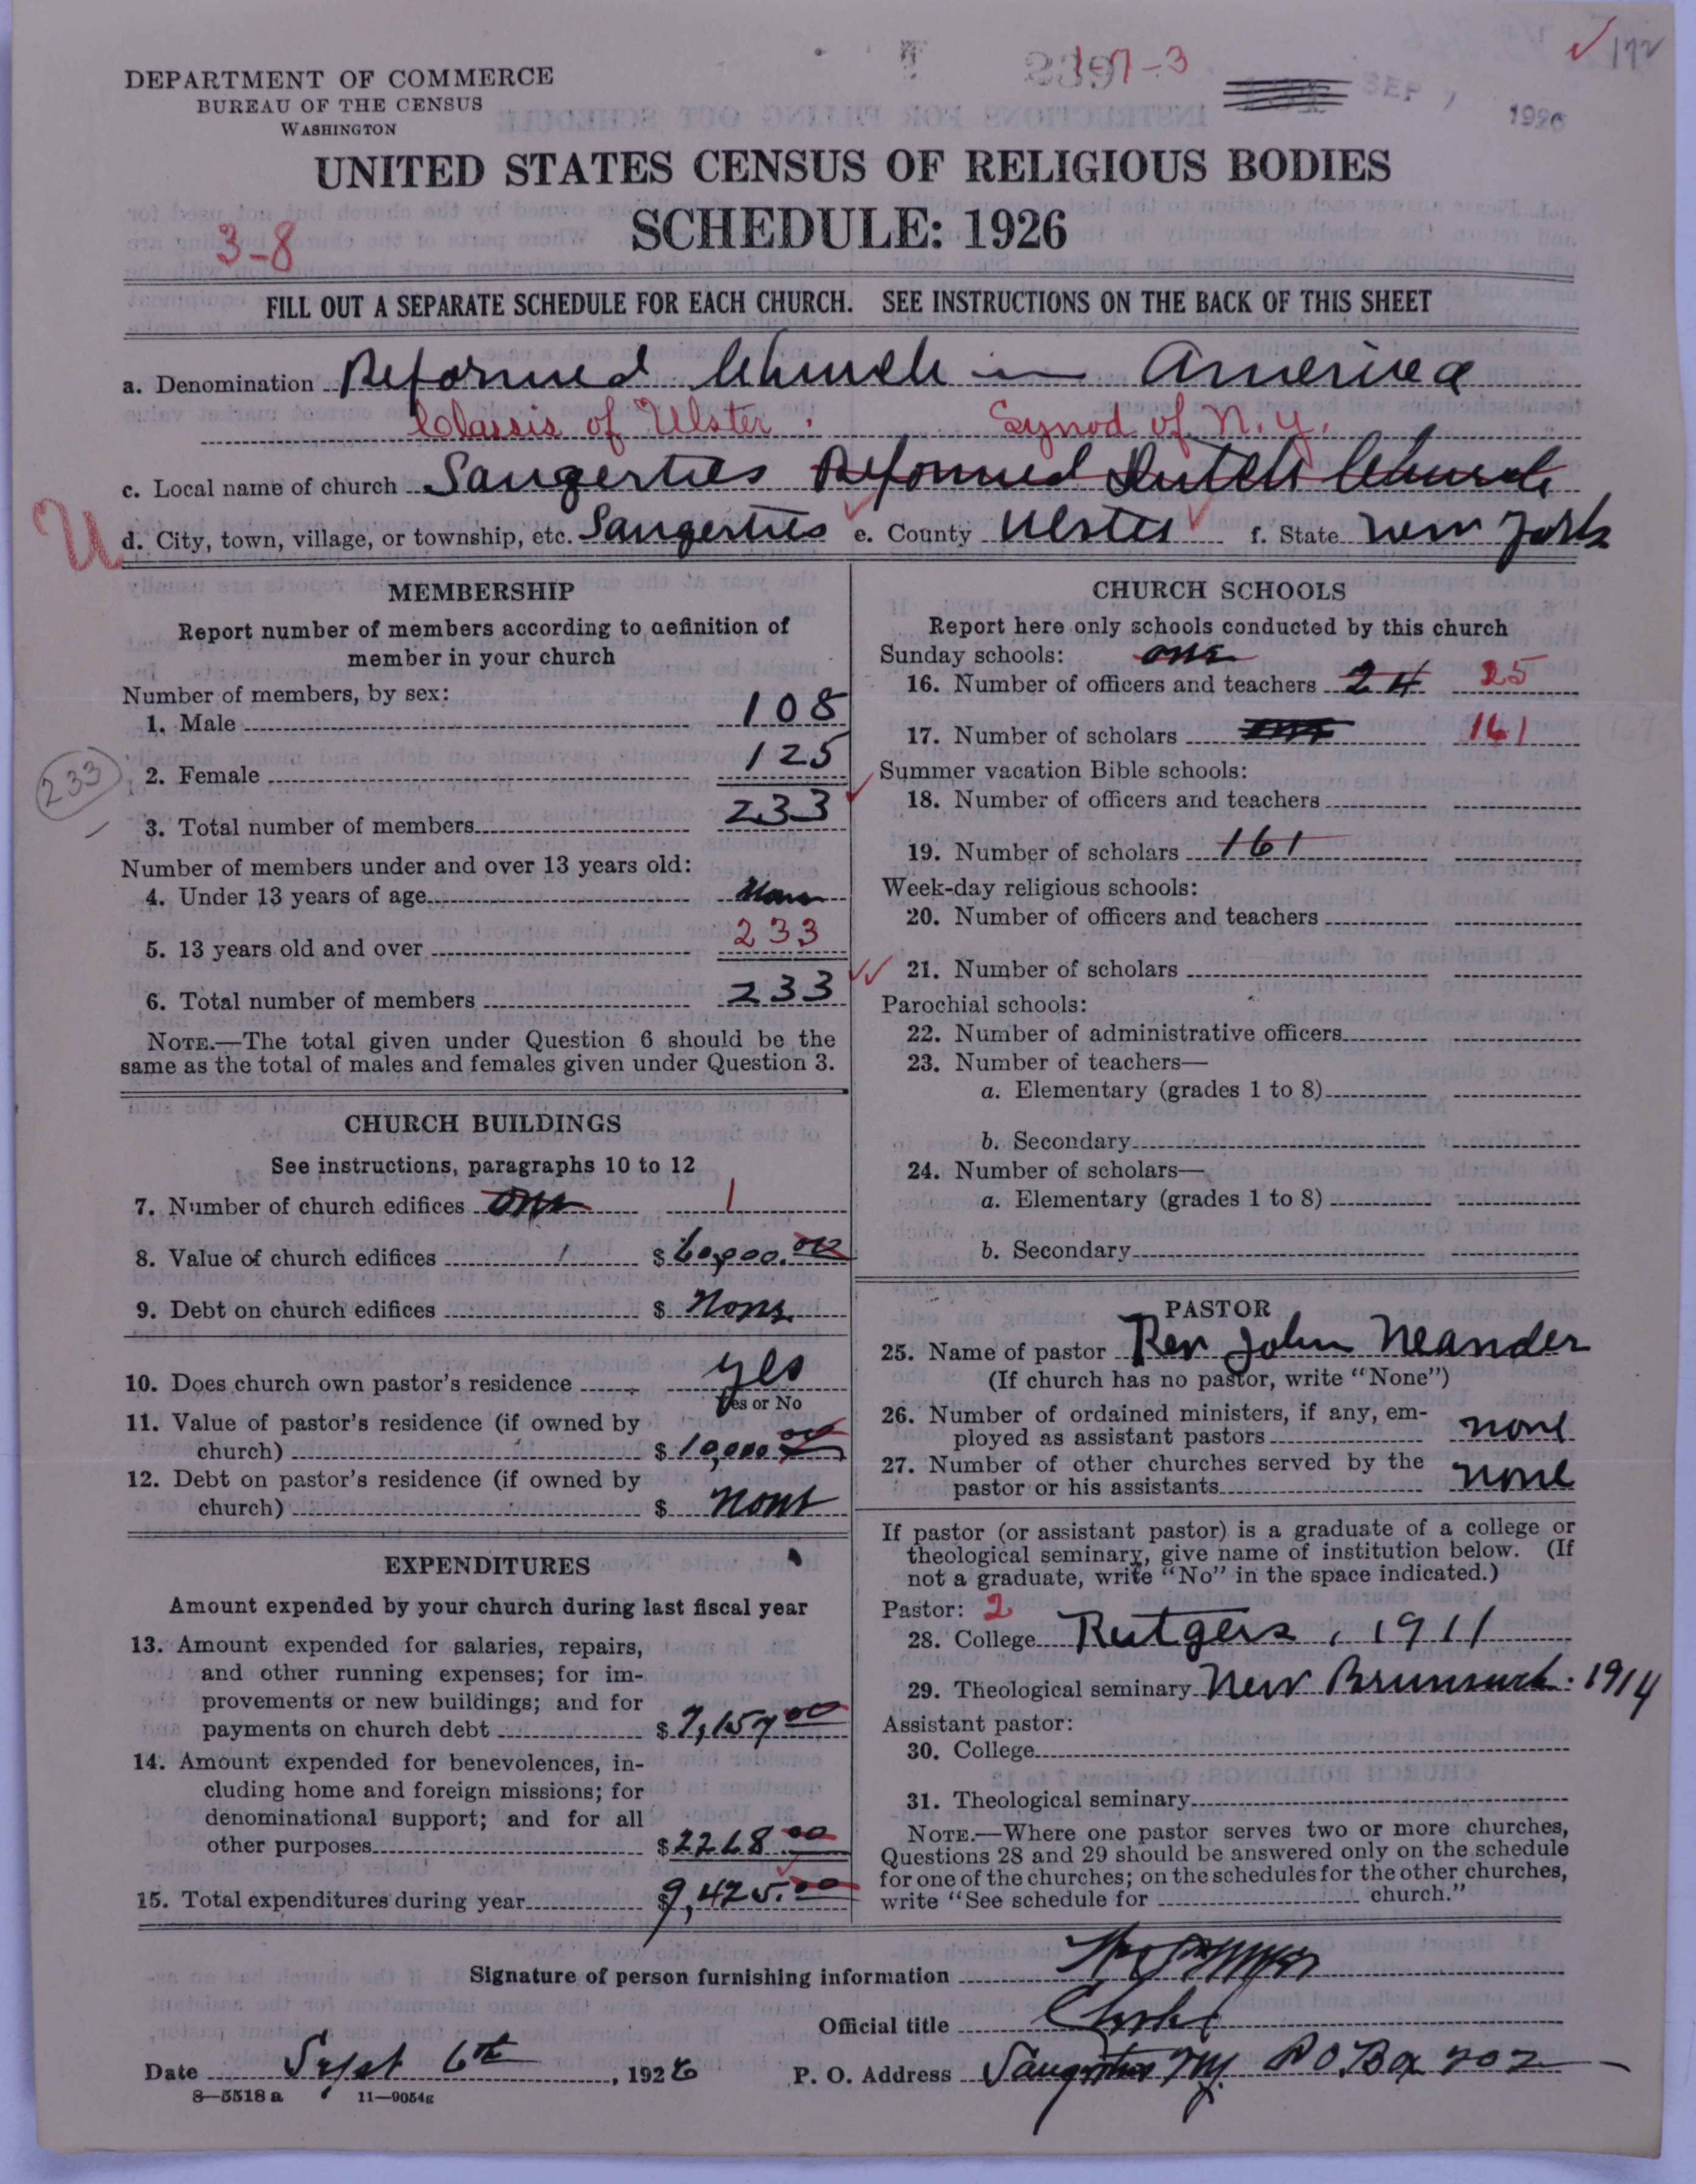 DEPARTMENT OF COMMERCE
BUREAU OF THE CENSUS
WASHINGTON
17-3
SEP 7 1926
172
UNITED STATES CENSUS OF RELIGIOUS BODIES
SCHEDULE: 1926
3-8
FILL OUT A SEPARATE SCHEDULE FOR EACH CHURCH. SEE INSTRUCTIONS ON THE BACK OF THIS SHEET
a. Denomination Reformed Church in America
Classis of Ulster. Synod of N.Y.
c. Local name of church Saugerties Reformed Dutch Church
U
d. City, town, village, or township, etc. Saugerties e. County Ulster f. State New York
MEMBERSHIP
Report number of members according to definition of
member in your church
Number of members, by sex:
1. Male 108
2. Female 125
233
3. Total number of members 233
Number of members under and over 13 years old:
4. Under 13 years of age None
5. 13 years old and over 233
6. Total number of members 233
NOTE.—The total given under Question 6 should be the
same as the total of males and females given under Question 3.
CHURCH BUILDINGS
See instructions, paragraphs 10 to 12
7. Number of church edifices one 1
8. Value of church edifices $60,000.00
9. Debt on church edifices $ None
10. Does church own pastor's residence yes
Yes or No
11. Value of pastor's residence (if owned by
church) $10,000.00
12. Debt on pastor's residence (if owned by
church) $ none
EXPENDITURES
Amount expended by your church during last fiscal year
13. Amount expended for salaries, repairs,
and other running expenses; for im-
provements or new buildings; and for
payments on church debt $7,157.00
14. Amount expended for benevolences, in-
cluding home and foreign missions; for
denominational support; and for all
other purposes $2268.00
15. Total expenditures during year $9,425.00
CHURCH SCHOOLS
Report here only schools conducted by this church
Sunday schools: one
16. Number of officers and teachers 24 25
17. Number of scholars 161
Summer vacation Bible schools:
18. Number of officers and teachers
19. Number of scholars 161
Week-day religious schools:
20. Number of officers and teachers
21. Number of scholars
Parochial schools:
22. Number of administrative officers
23. Number of teachers—
a. Elementary (grades 1 to 8)
b. Secondary
24. Number of scholars—
a. Elementary (grades 1 to 8)
b. Secondary
PASTOR
25. Name of pastor Rev John Neander
(If church has no pastor, write "None")
26. Number of ordained ministers, if any, em-
ployed as assistant pastors none
27. Number of other churches served by the
pastor or his assistants none
If pastor (or assistant pastor) is a graduate of a college or
theological seminary, give name of institution below. (If
not a graduate, write "No" in the space indicated.)
Pastor: 2
28. College Rutgers, 1911
29. Theological seminary New Brunswick. 1914
Assistant pastor:
30. College
31. Theological seminary
NOTE.—Where one pastor serves two or more churches,
Questions 28 and 29 should be answered only on the schedule
for one of the churches; on the schedules for the other churches,
write "See schedule for church."
Signature of person furnishing information
Official title Clerk
Date Sept 6th, 1926 P. O. Address Saugerties N.Y. P.O. Box 202
8—5518 a 11—9054g